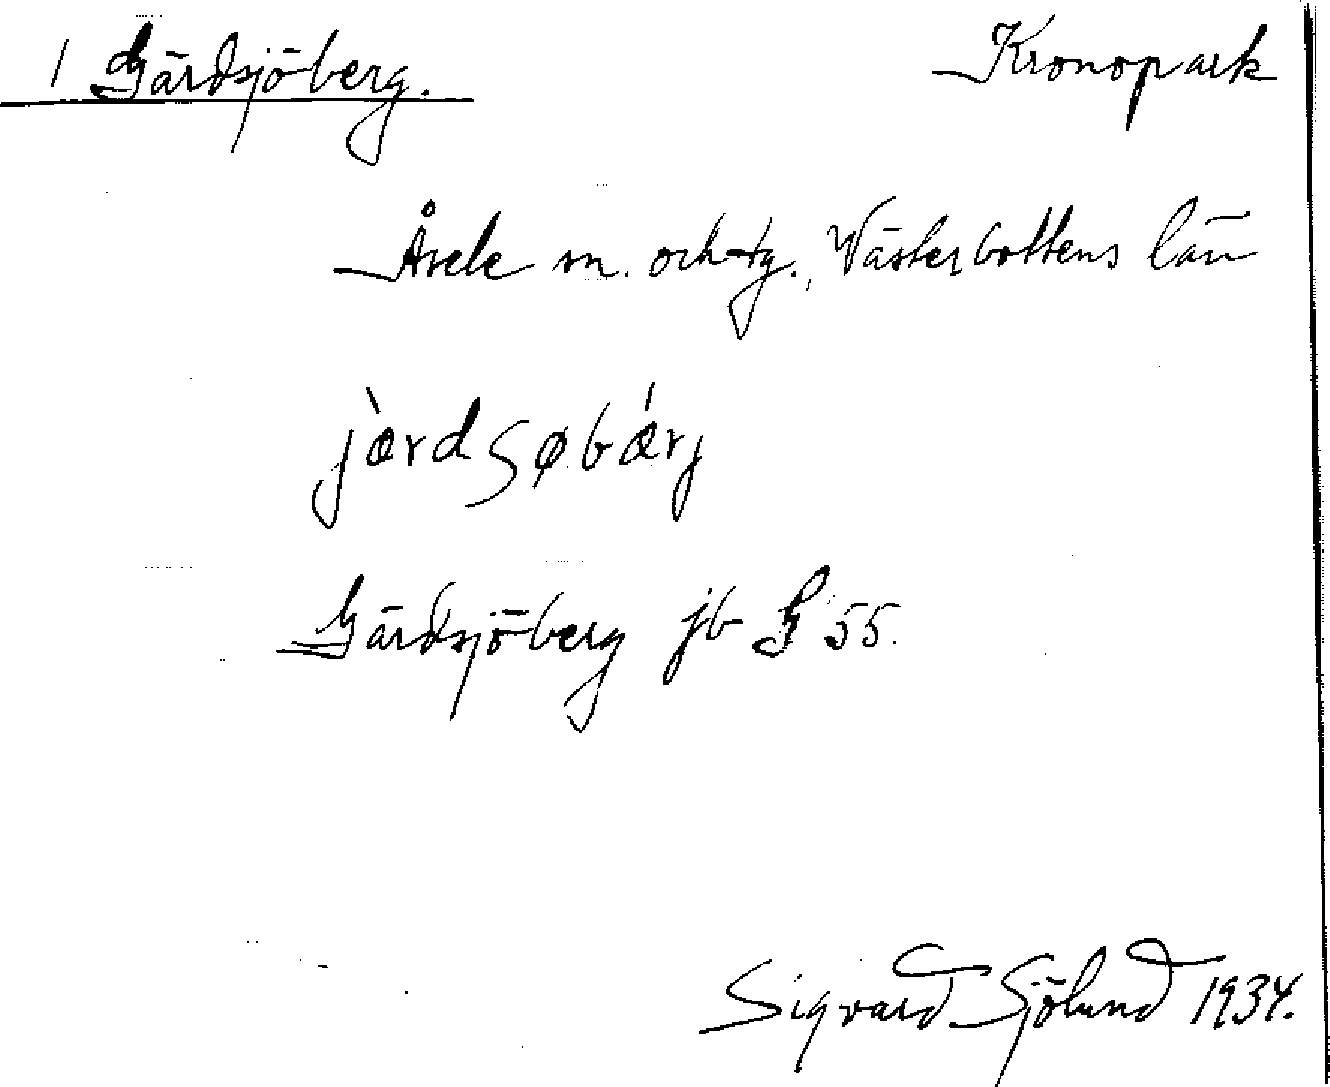 1 Gärdsjöberg. Kronopark
Åsele sn. och tg., Västerbottens län
jæ̀rdʂøbǽrj
Gärdsjöberg jb § 55.
Sigvard Sjölund 1934.